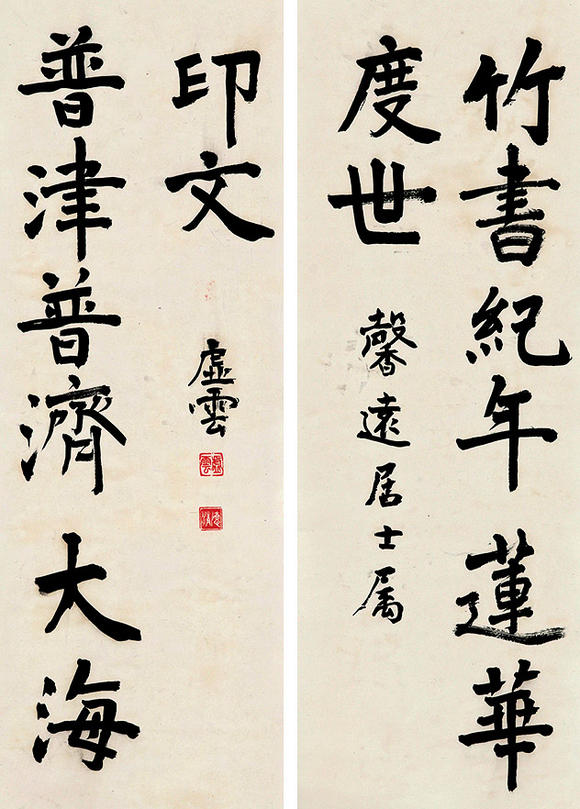 竹書紀年蓮華
度世
馨遠居士属
普津普濟大海
印文
虛雲
虛雲